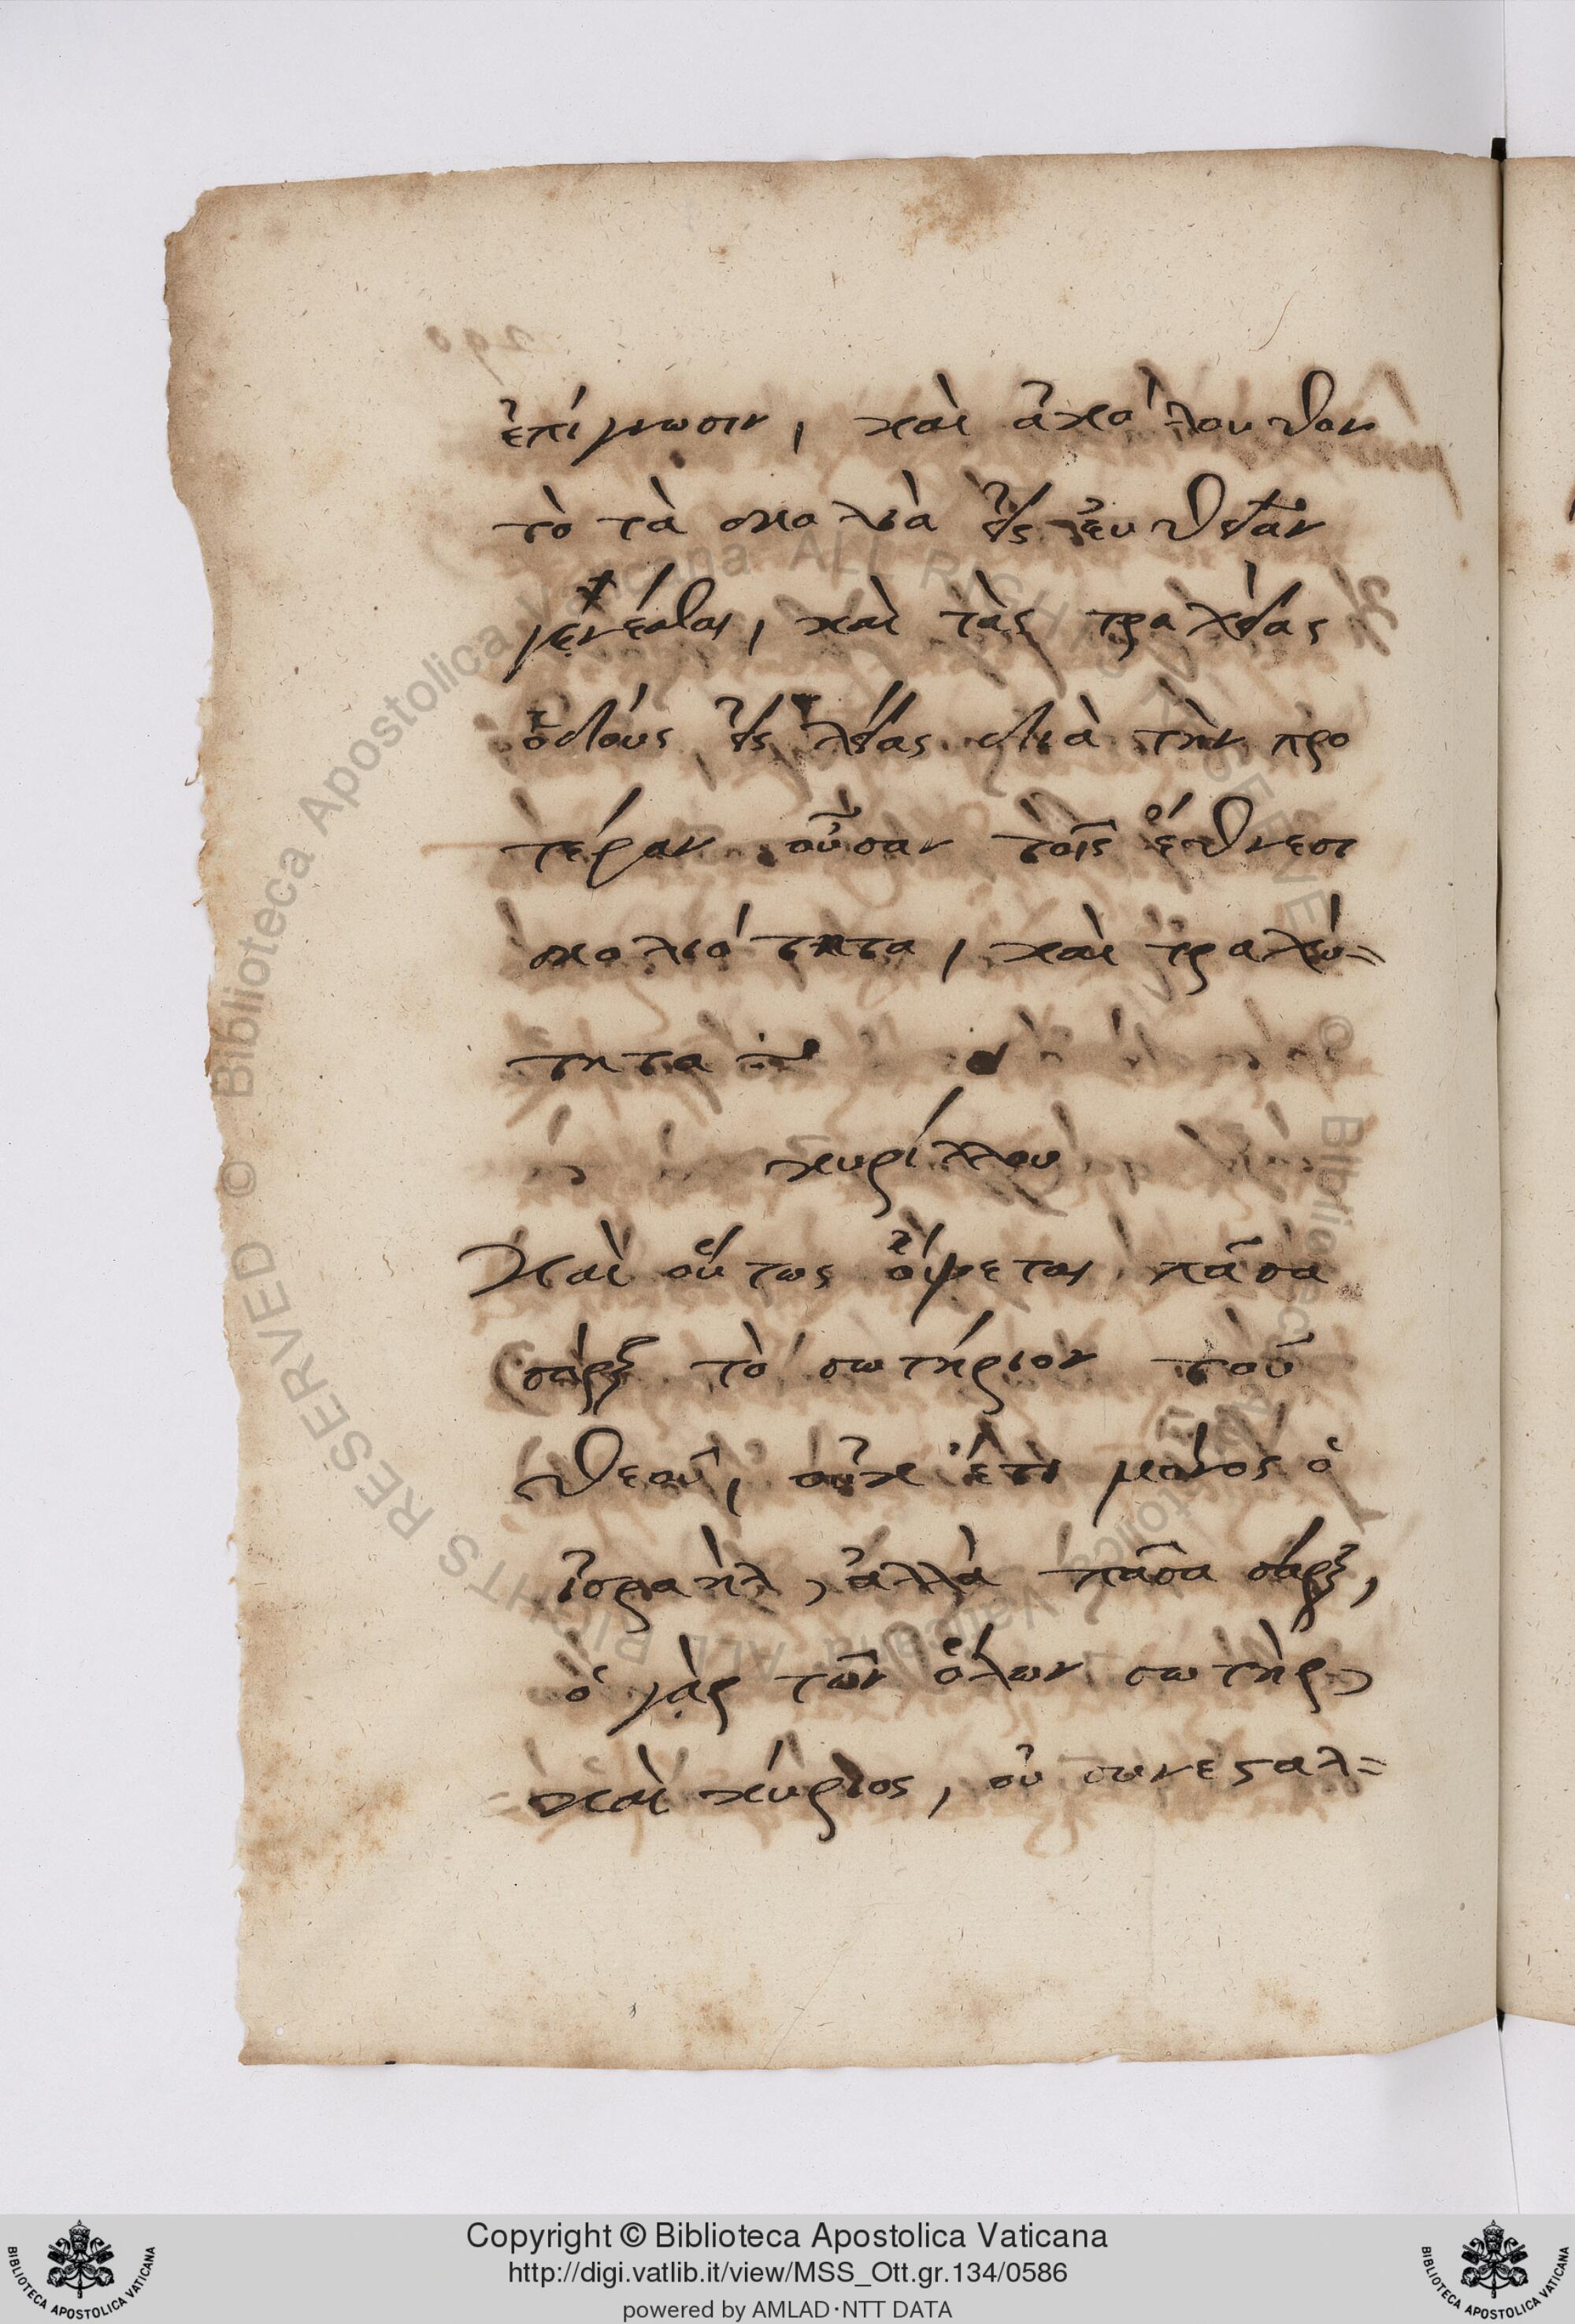 ἐπίγνωσιν, καὶ ἀκόλουθον
τὸ τὰ σκολιὰ εἰς εὐθεῖαν
γενέσθαι, καὶ τὰς τραχείας
ὁδοὺς εἰς λείας διὰ τὴν προ
τέραν οὖσαν τοῖς ἔθνεσι
σκολιότητα, καὶ τραχύ=
τητα
κυρίλλου
Καὶ οὕτως ὄψεται πᾶσα
σὰρξ τὸ σωτήριον τοῦ
θεοῦ, οὐκ ἔτι μόνος ὁ
ἰσραὴλ, ἀλλὰ πᾶσα σάρξ,
ὁ γὰρ τῶν ὅλων σωτὴρ,
καὶ κύριος, οὐ συνεσταλ=
Biblioteca Apostolica Vaticana ALL RIGHTS RESERVED ©
Copyright © Biblioteca Apostolica Vaticana
http://digi.vatlib.it/view/MSS_Ott.gr.134/0586
powered by AMLAD·NTT DATA
BIBLIOTECA APOSTOLICA VATICANA
BIBLIOTECA APOSTOLICA VATICANA